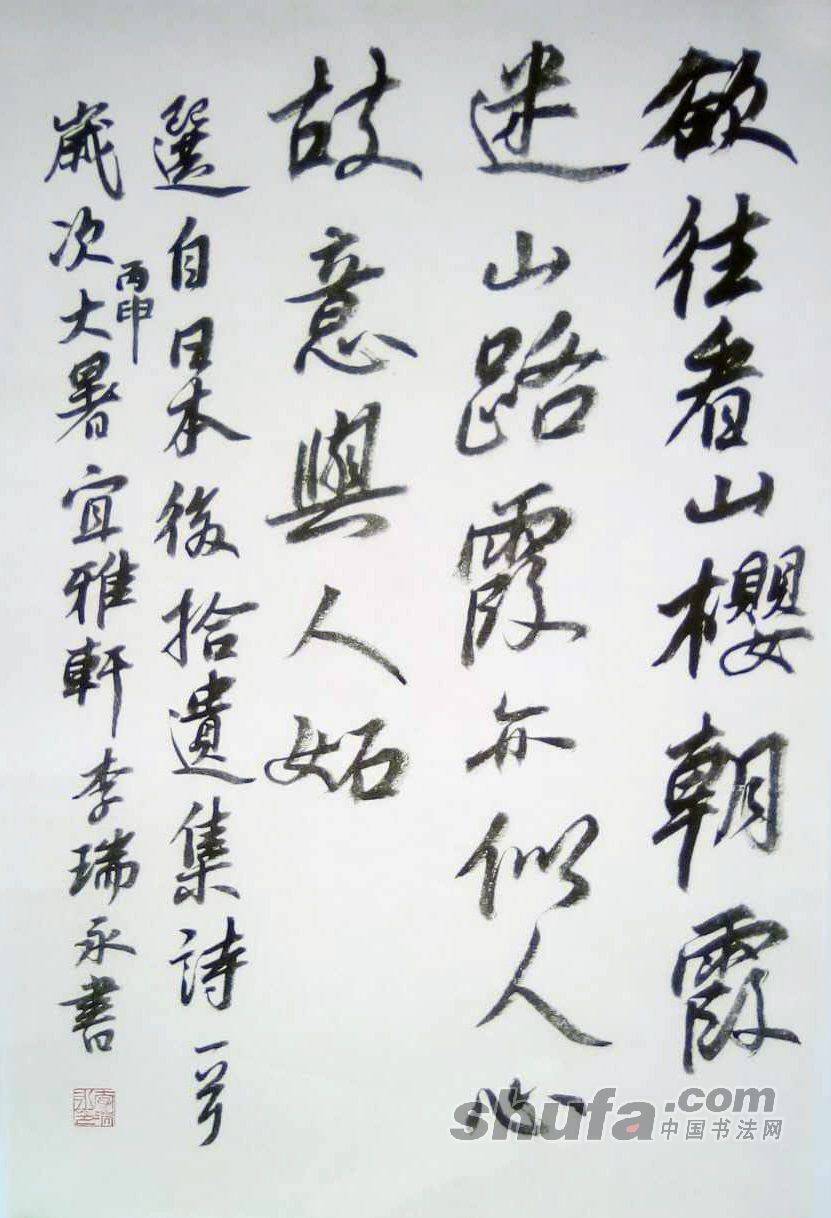 欲往看山櫻朝霞
迷山路霞亦似人心
故意與人妬
選自日本後拾遺集詩一首
歲次丙申大暑宜雅軒李瑞永書
shufa.com
中国书法网